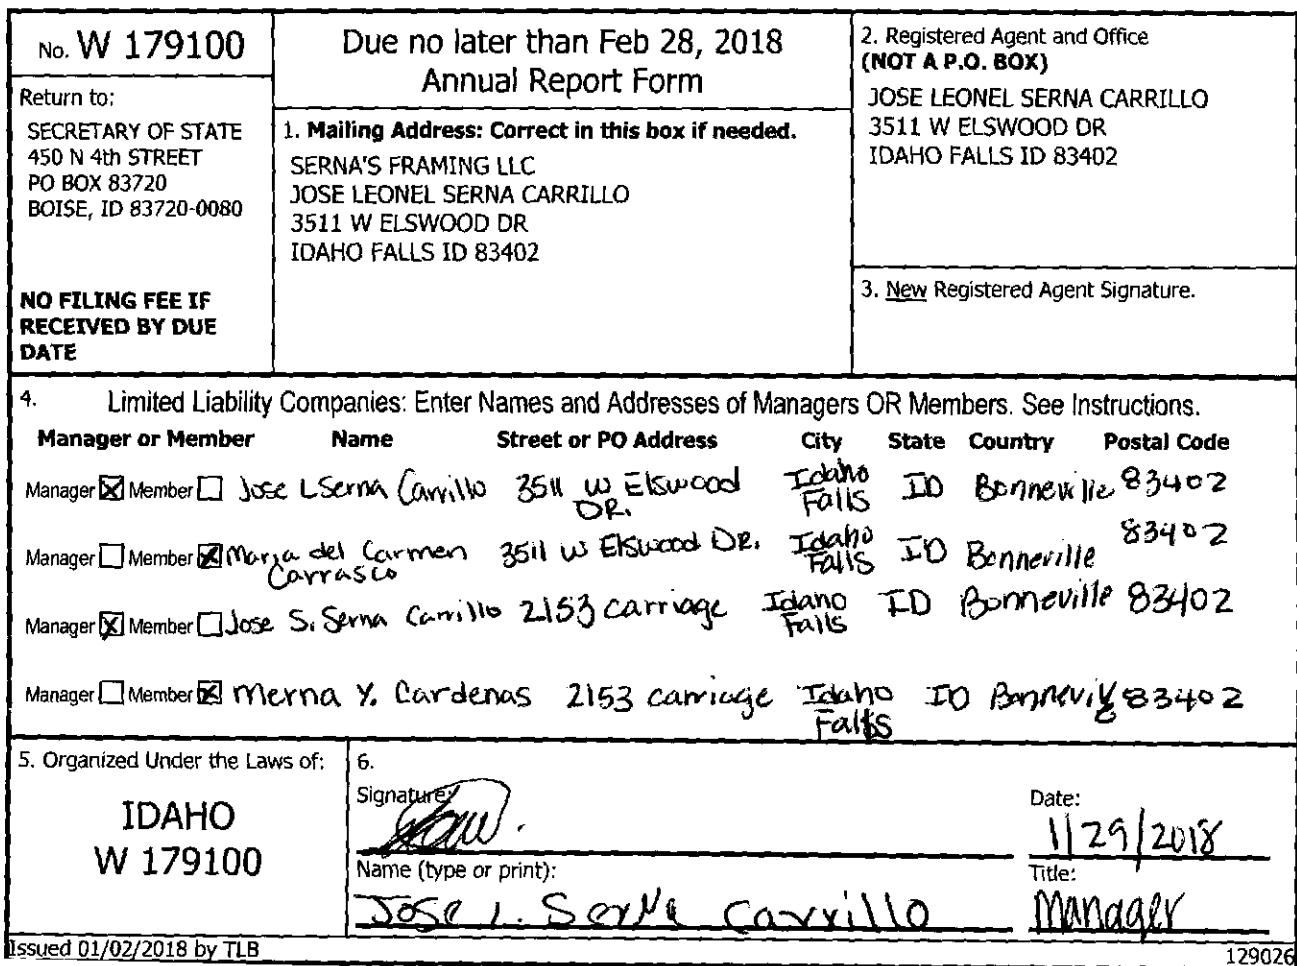 No. W 179100
Return to:
SECRETARY OF STATE
450 N 4th STREET
PO BOX 83720
BOISE, ID 83720-0080
NO FILING FEE IF
RECEIVED BY DUE
DATE
Due no later than Feb 28, 2018
Annual Report Form
1. Mailing Address: Correct in this box if needed.
SERNA'S FRAMING LLC
JOSE LEONEL SERNA CARRILLO
3511 W ELSWOOD DR
IDAHO FALLS ID 83402
2. Registered Agent and Office
(NOT A P.O. BOX)
JOSE LEONEL SERNA CARRILLO
3511 W ELSWOOD DR
IDAHO FALLS ID 83402
3. New Registered Agent Signature.
4. Limited Liability Companies: Enter Names and Addresses of Managers OR Members. See Instructions.
Manager or Member Name Street or PO Address City State Country Postal Code
Manager Member Jose L Serna Carrillo 3511 W Elswood DR. Idaho Falls ID Bonneville 83402
Manager Member Maria del Carmen Carrasco 3511 W Elswood DR. Idaho Falls ID Bonneville 83402
Manager Member Jose S. Serna Carrillo 2153 carriage Idaho Falls ID Bonneville 83402
Manager Member Merna Y. Cardenas 2153 carriage Idaho Falls ID Bonneville 83402
5. Organized Under the Laws of:
IDAHO
W 179100
6.
Signature:
Date:
1/29/2018
Name (type or print):
Jose L. Serna Carrillo
Title:
Manager
Issued 01/02/2018 by TLB
129026